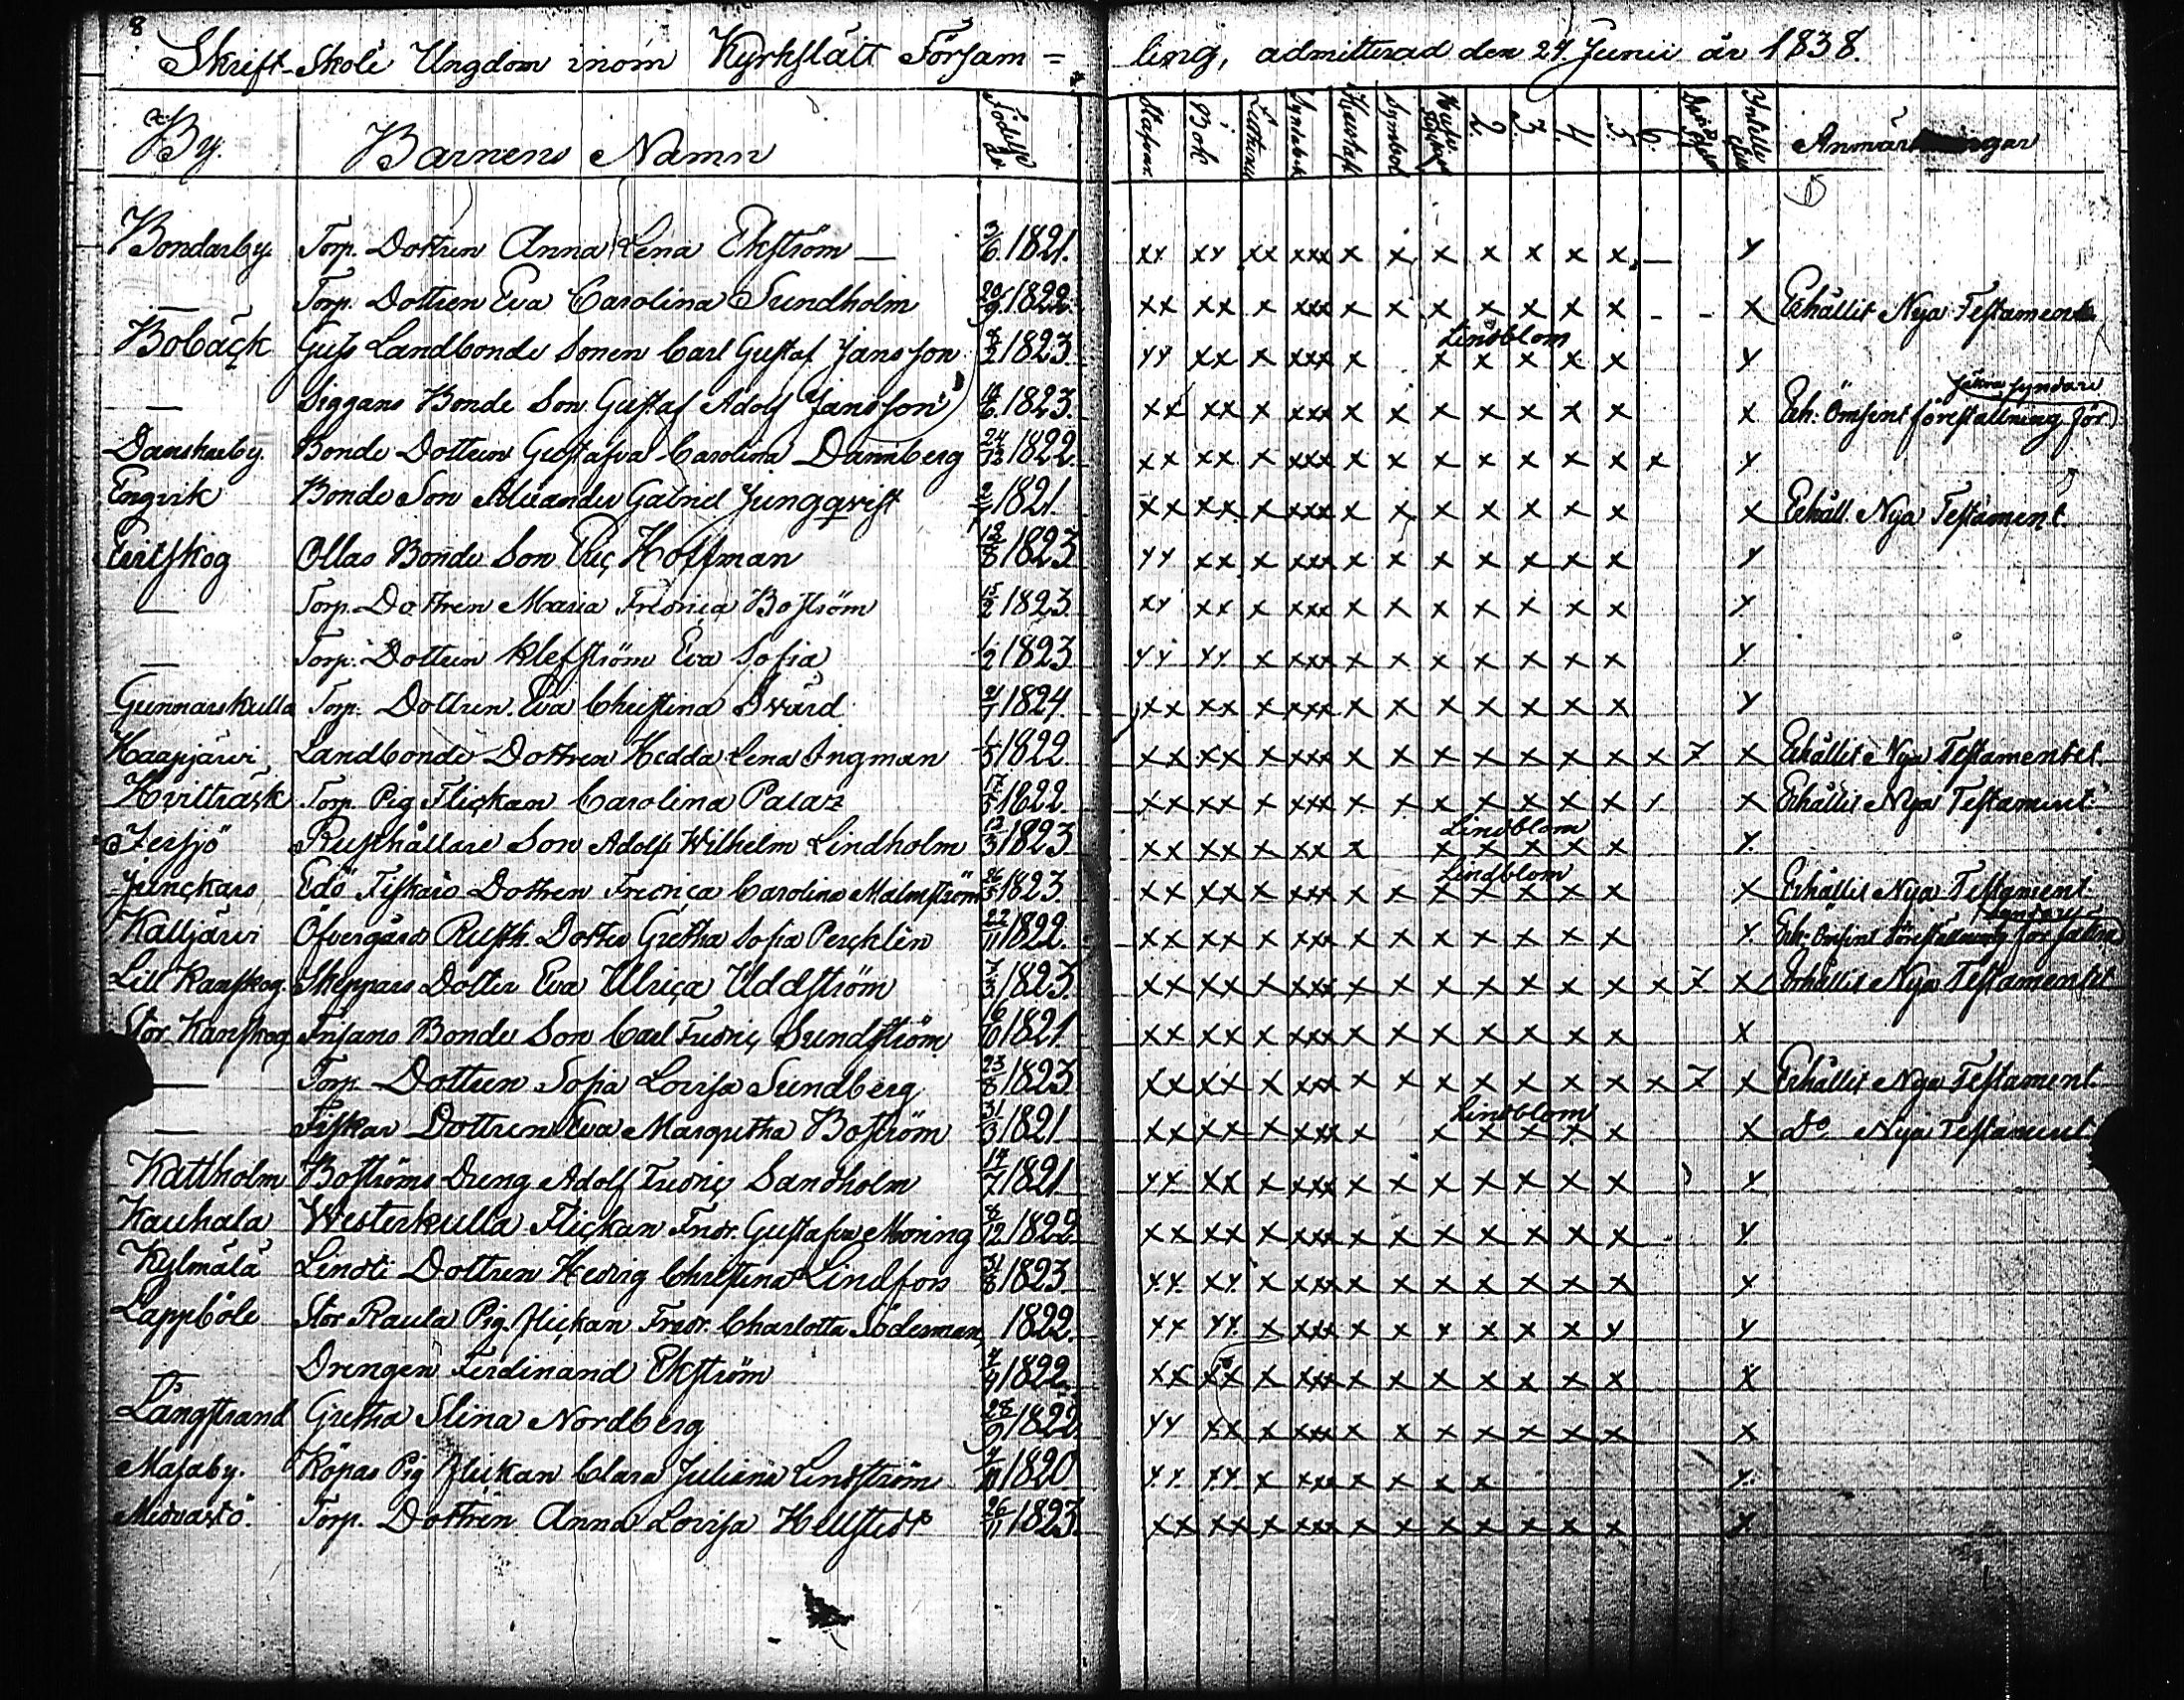 8
Skrift-Skole Ungdom inom Kyrkslätt Försam = ling, admitterad den 24. Junii år 1838.
By. Barnens Namn Födelse år Stafvar Bok Lutheri Hustafl Symbol 2. 3. 4. 5. 6. Anmärkningar
Bondarby. Torp. Dottren Anna Lena Ekström — 3/6 1821. xx xx xx xxx x x x x x x x — x
— Torp. Dottren Eva Carolina Sundholm 20/9 1822. xx xx x xxx x x x x x x x - - x Erhållit Nya Testament
Lindblom
Bobäck Gufs Landbonde Sonen Carl Gustaf Jansson 1823. xx xx x xxx x x x x x x x
fåkra syndare
— Siggans Bonde Son Gustaf Adolf Jansson 1823. xx xx x xxx x x x x x x x x Erh: Omsint föreställning för
Danskarby. Bonde Dottren Gustafva Carolina Dannberg 24/12 1822. xx xx x xxx x x x x x x x x x
Engvik Bonde Son Alexander Gabriel Jungqvist 1821. xx xx x xxx x x x x x x x x Erhåll. Nya Testament.
Evitskog Ollas Bonde Son Eric Hoffman 12/8 1823 xx xx x xxx x x x x x x x x
— Torp. Dottren Maria Fredrica Boström 15/2 1823. xx xx x xxx x x x x x x x x
— Torp. Dottren Klefström Eva Sofia 1/2 1823 xx xx x xxx x x x x x x x x
Gunnarskulla Torp. Dottren Eva Christina Svärd 21/7 1824. xx xx x xxx x x x x x x x x
Haapjärvi Landbonde Dottren Hedda Lena Ingman 1/5 1822. xx xx x xxx x x x x x x x x 7 x Erhållit Nya Testamentet.
Hvitträsk Torp. Pig Flickan Carolina Palas 17/5 1822. xx xx x xxx x x x x x x x x x Erhållit Nya Testament.
Lindblom
Jersjö Rusthållare Son Adolf Wilhelm Lindholm 12/3 1823 xx xx x xx x x x x x x x
Lindblom
Junckars Edö Fiskars Dottren Fredrica Carolina Malmström 26/5 1823. xx xx x xxx x x x x x x x x Erhållit Nya Testament.
syndare
Kalljärvi Öfvergårds Rusth. Dotter Gretha Sofia Perchlin 22/11 1822. xx xx x xxx x x x x x x x x Erh. Omsint föreställning för fåkra
Lill Kanskog. Skeppars Dotter Eva Ulrica Uddström 7/3 1823. xx xx x xxx x x x x x x x x 7. x Erhållit Nya Testamentet
Stor Kanskog Frisans Bonde Son Carl Fredric Sundström 16/10 1821 xx xx x xxx x x x x x x x x
— Torp. Dottren Sofia Lovisa Sundberg 23/8 1823. xx xx x xxx x x x x x x x x 7 x Erhållit Nya Testament.
Lindblom
— Fiskar Dottren Eva Margretha Boström 31/3 1821 xx xx x xxx x x x x x x x Do. Nya Testament
Kattholm Boströms Dreng Adolf Fredric Sandholm 14/7 1821 xx xx x xxx x x x x x x x x
Kauhala Westerkulla Flickan Fredr. Gustafva Moring 8/12 1822 xx xx x xxx x x x x x x x x
Kylmälä Lindti Dottren Hedvig Christina Lindfors 31/8 1823. xx xx x xxx x x x x x x x x
Lappböle Stor Raula Pig. flickan Fredr. Charlotta Söderman 1822. xx xx x xxx x x x x x x x x
— Drengen Ferdinand Ekström 4/9 1822. xx xx x xxx x x x x x x x x
Långstrand Gretha Stina Nordberg 28/9 1822 xx xx x xxx x x x x x x x x
Masaby. Köpas Pig flickan Clara Juliana Lindström 1820 xx xx x xxx x x x x x
Medvastö. Torp. Dottren Anna Lovisa Hellstedt 26/11 1823. xx xx x xxx x x x x x x x x